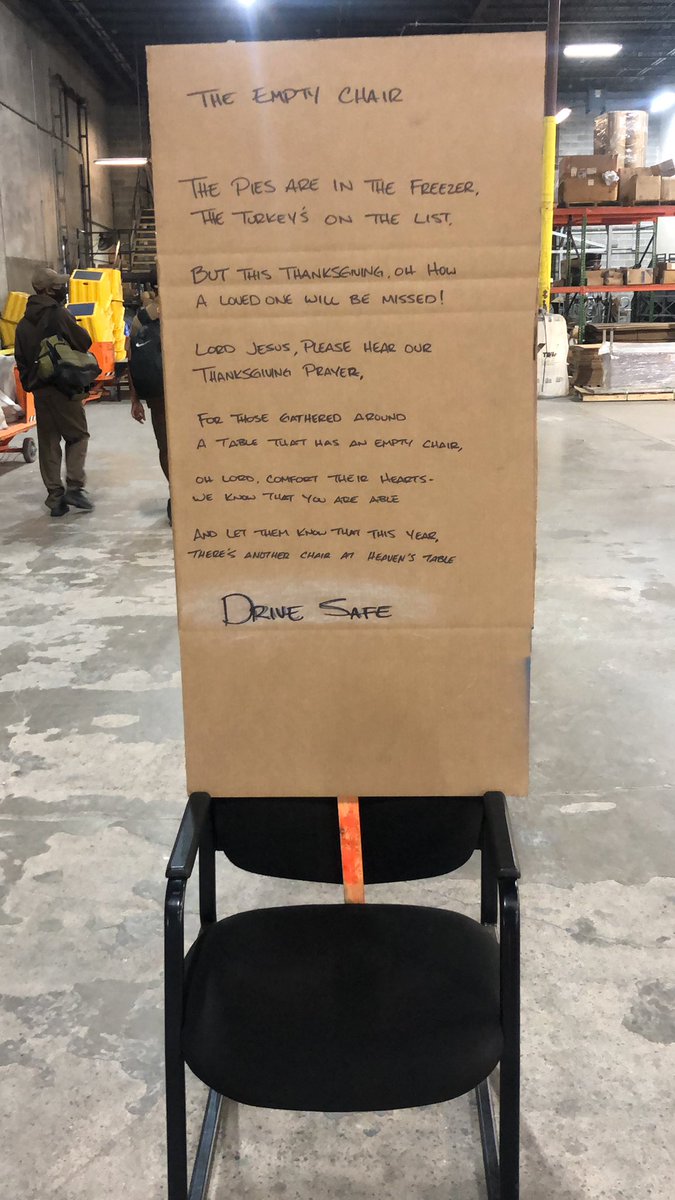 THE EMPTY CHAIR
THE PIES ARE IN THE FREEZER,
THE TURKEY'S ON THE LIST.
BUT THIS THANKSGIVING, OH HOW
A LOVED ONE WILL BE MISSED!
LORD JESUS, PLEASE HEAR OUR
THANKSGIVING PRAYER,
FOR THOSE GATHERED AROUND
A TABLE THAT HAS AN EMPTY CHAIR,
OH LORD, COMFORT THEIR HEARTS-
WE KNOW THAT YOU ARE ABLE
AND LET THEM KNOW THAT THIS YEAR,
THERE'S ANOTHER CHAIR AT HEAVEN'S TABLE
DRIVE SAFE